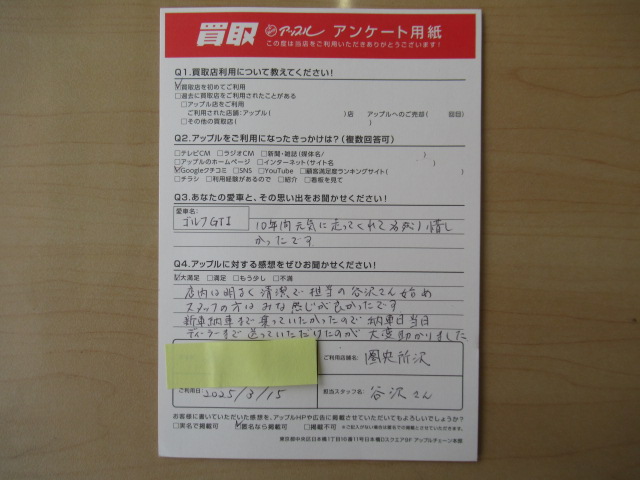 買取 アップル アンケート用紙
この度は当店をご利用いただきありがとうございます!
Q1.買取店利用について教えてください!
☑買取店を初めてご利用
□過去に買取店をご利用されたことがある
□アップル店をご利用
ご利用された店舗:アップル( )店 アップルへのご売却( 回目)
□その他の買取店( )
Q2.アップルをご利用になったきっかけは?(複数回答可)
□テレビCM □ラジオCM □新聞・雑誌(媒体名/ )
□アップルのホームページ □インターネット(サイト名 )
☑Googleクチコミ □SNS □YouTube □顧客満足度ランキングサイト( )
□チラシ □利用経験があるので □紹介 □看板を見て
Q3.あなたの愛車と、その思い出をお聞かせください!
愛車名:
ゴルフGTI
10年間元気に走ってくれて名残り惜し
かったです
Q4.アップルに対する感想をぜひお聞かせください!
☑大満足 □満足 □もう少し □不満
店内は明るく清潔で担当の谷沢さん始め
スタッフの方はみな感じが良かったです
新車納車まで乗っていたかったので納車日当日
ディーラーまで送っていただけたのが大変助かりました
ご利用店舗名: 圏央所沢
ご利用日 2025/3/15
担当スタッフ名: 谷沢さん
お客様に書いていただいた感想を、アップルHPや広告に掲載させていただいてもよろしいでしょうか?
□実名で掲載可 ☑匿名なら掲載可 □掲載不可 ※ご記入がない場合は匿名での掲載とさせていただきます。
東京都中央区日本橋1丁目16番11号日本橋Dスクエア9F アップルチェーン本部